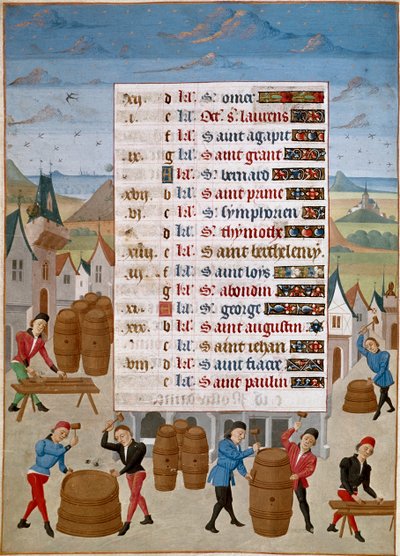 .xii. d kl. St omer
.i. e kl. Oct. s. laurens
f kl. Saint agapit
.ix. g kl. Saint grant
A kl. St bernard
.xvii. b kl. Saint prime
.vi. c kl. St symphorien
d kl. St thymothe
.xiiii. e kl. Saint berthelemy.
.iii. f kl. Saint loys
g kl. St abondin
.xi. A kl. St george
.xix. b kl. Saint augustin
c kl. Saint iehan
.viii. d kl. Saint fiacre
e kl. Saint paulin